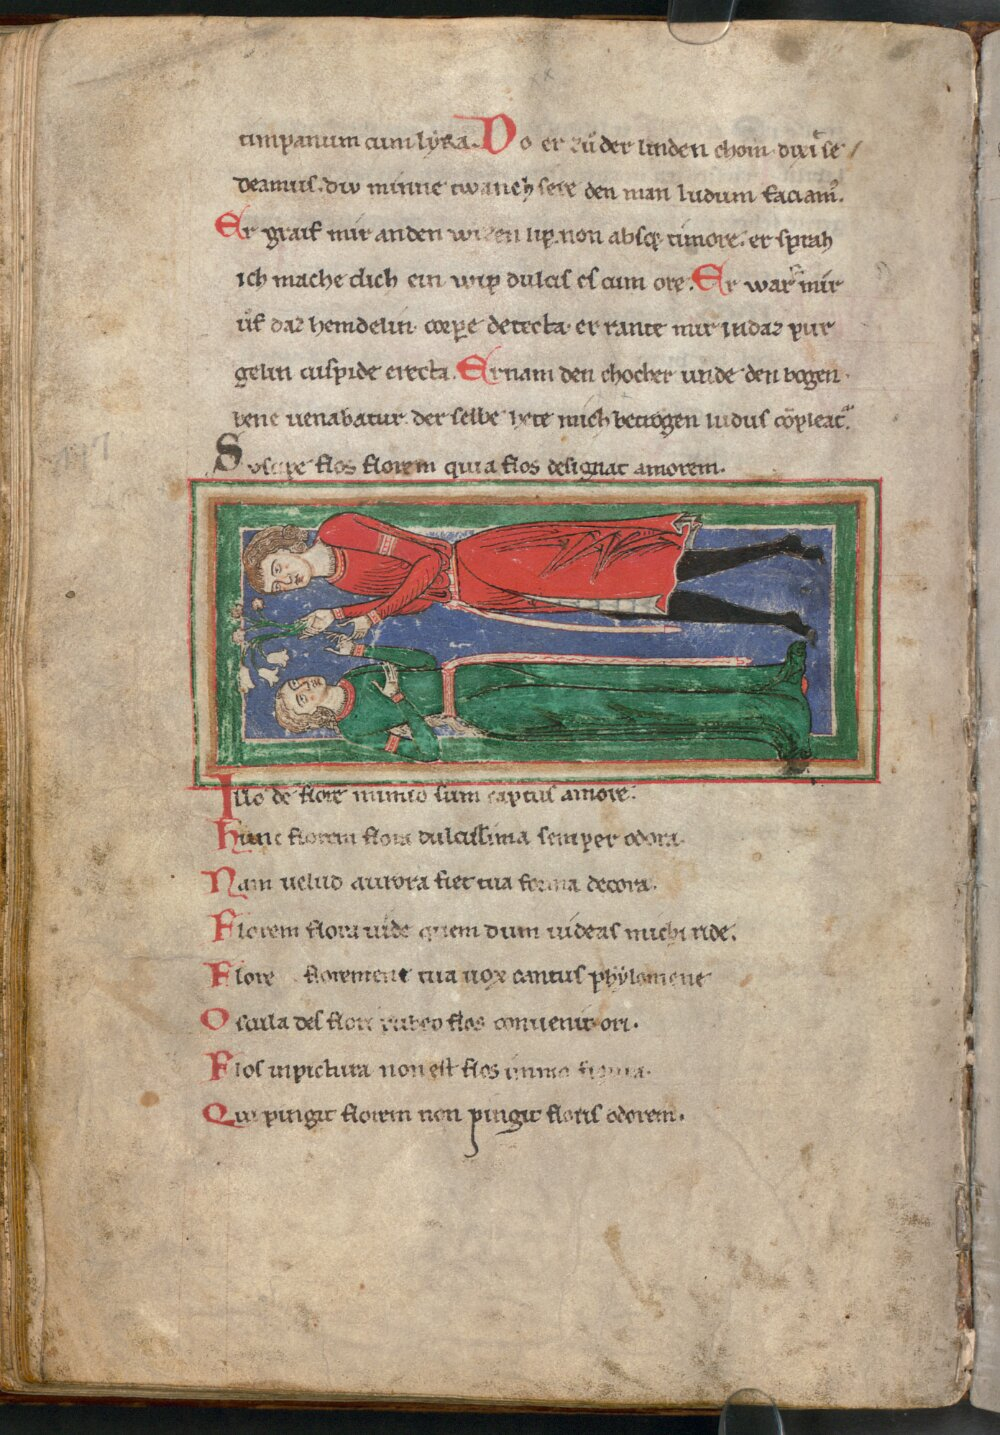 timpanum cum lyra. Do er zů der linden chom dixit se
deamus. diu minne twanch sere den man ludum faciam᷒.
Er graif mir an den wizen lip. non absq; timore. er sprah
ich mache dich ein wip dulcis es cum ore. Er warf mir
uͦf daz hemdelin. corpe detecta. er rante mir indaz pur
gelin cuspide erecta. Er nam den chocher unde den bogen.
bene uenabatur. der selbe hete mich betrogen ludus cōpleat᷒.
Suscipe flos florem quia flos designat amorem.
Illo de flore nimio sum captus amore.
Hunc florem flora dulcissima semper odora.
Nam uelud aurora fiet tua forma decora.
Florem flora uide quem dum uideas michi ride.
Flore florem tua uox cantus phylomene
Oscula des flori rubeo flos conuenit ori.
Flos inpictura non est flos immo figura.
Qui pingit florem non pingit floris odorem.